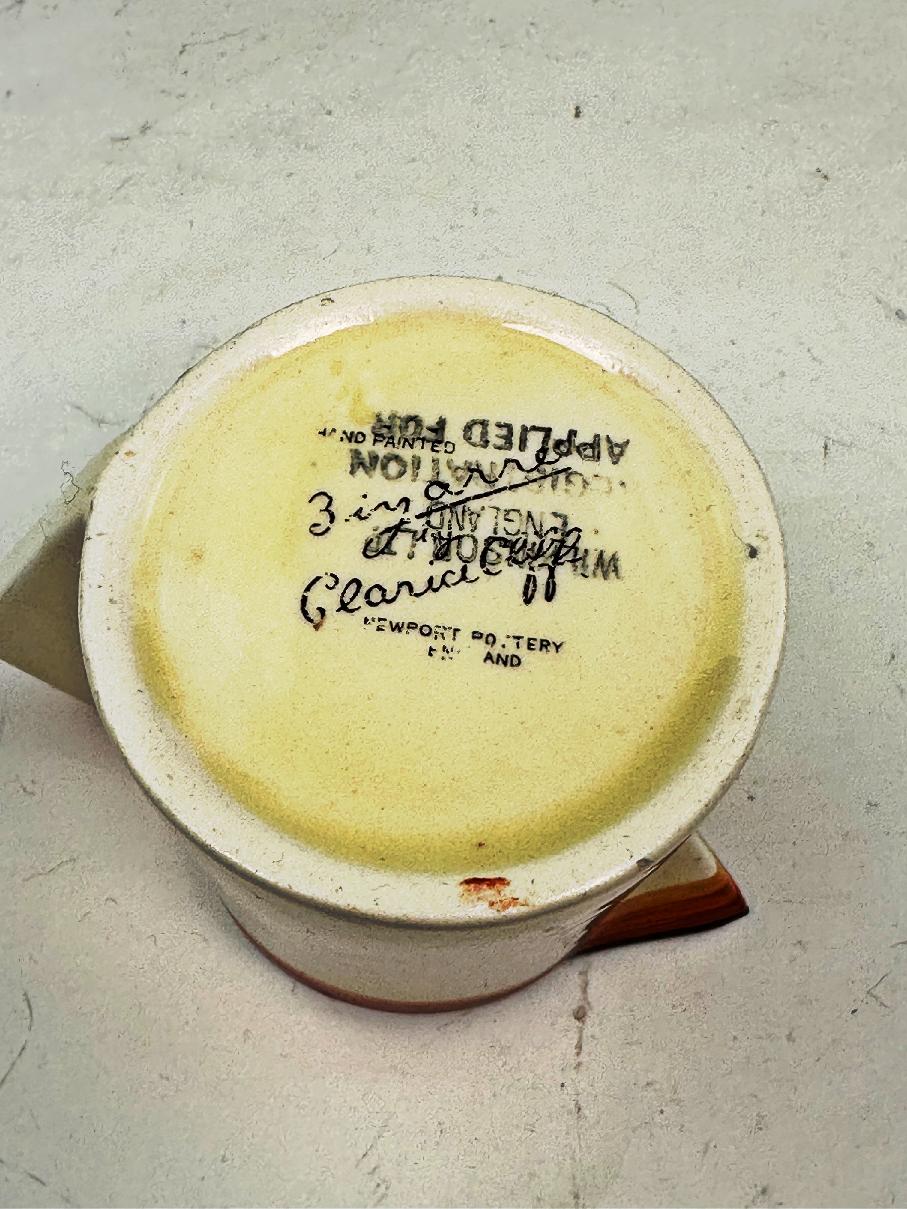 HAND PAINTED
Bizarre
by
Clarice Cliff
NEWPORT POTTERY
ENGLAND
LTD
ENGLAND
REGISTRATION
APPLIED FOR